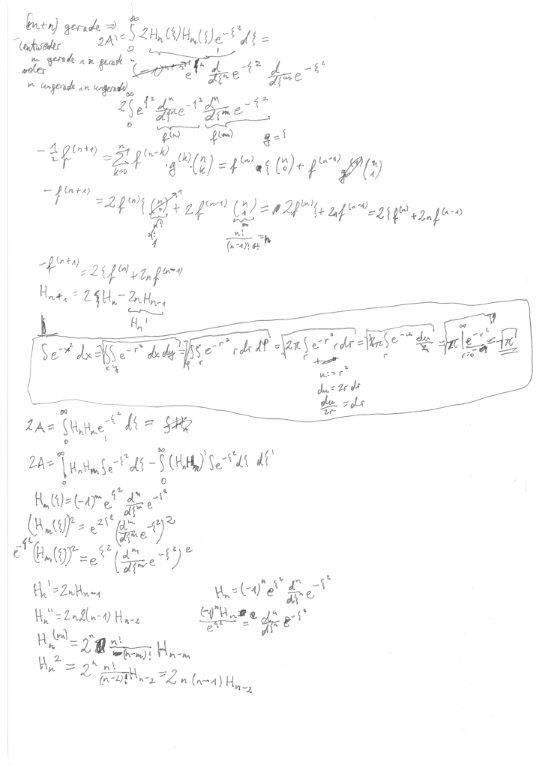 (m+n) gerade ⇒ 2A = ∫₀^∞ 2Hₙ(ξ)Hₘ(ξ)e^{-ξ²} dξ =
-entweder
m gerade ∧ n gerade
oder
m ungerade ∧ n ungerade
e^{ξ²} d/dξⁿ e^{-ξ²} d/dξᵐ e^{-ξ²}
2∫₀^∞ e^{ξ²} dⁿ/dξⁿ e^{-ξ²} dᵐ/dξᵐ e^{-ξ²}
f^{(n)} f^{(m)} g = ξ
-½f^{(n+1)} = Σ_{k=0}^n f^{(n-k)}·g^{(k)}(n k) = f^{(n)} ξ (n 0) + f^{(n-1)} (n 1)
-f^{(n+1)} = 2f^{(n)}ξ (n 0) + 2f^{(n-1)} (n 1) = 2f^{(n)}ξ + 2nf^{(n-1)} = 2ξf^{(n)} + 2nf^{(n-1)}
n!/(n-1)! = n
-f^{(n+1)} = 2ξf^{(n)} + 2nf^{(n-1)}
Hₙ₊₁ = 2ξHₙ - 2nHₙ₋₁
Hₙ'
∫e^{-x²}dx = √∫∫e^{-r²}dxdy = √∫∫e^{-r²}rdrdφ = √2π∫e^{-r²}rdr = √2π∫e^{-u}du/2 = √π|e^{-r²}| = √π
u = r²
du = 2rdr
du/2r = dr
2A = ∫₀^∞ HₙHₘe^{-ξ²}dξ =
2A = ∫₀^∞ HₙHₘ∫e^{-ξ²}dξ - ∫₀^∞ (HₙHₘ)'∫e^{-ξ²}dξ dξ'
Hₘ(ξ) = (-1)ᵐ e^{ξ²} dᵐ/dξᵐ e^{-ξ²}
(Hₘ(ξ))² = e^{2ξ²}(dᵐ/dξᵐ e^{-ξ²})²
e^{-ξ²}(Hₘ(ξ))² = e^{ξ²}(dᵐ/dξᵐ e^{-ξ²})²
Hₙ' = 2nHₙ₋₁ Hₙ = (-1)ⁿ e^{ξ²} dⁿ/dξⁿ e^{-ξ²}
Hₙ'' = 2n2(n-1)Hₙ₋₂ (-1)ⁿHₙ/e^{ξ²} = dⁿ/dξⁿ e^{-ξ²}
Hₙ^{(m)} = 2ⁿ n!/(n-m)! Hₙ₋ₘ
Hₙ² = 2ⁿ n!/(n-2)! Hₙ₋₂ = 2n(n-1)Hₙ₋₂